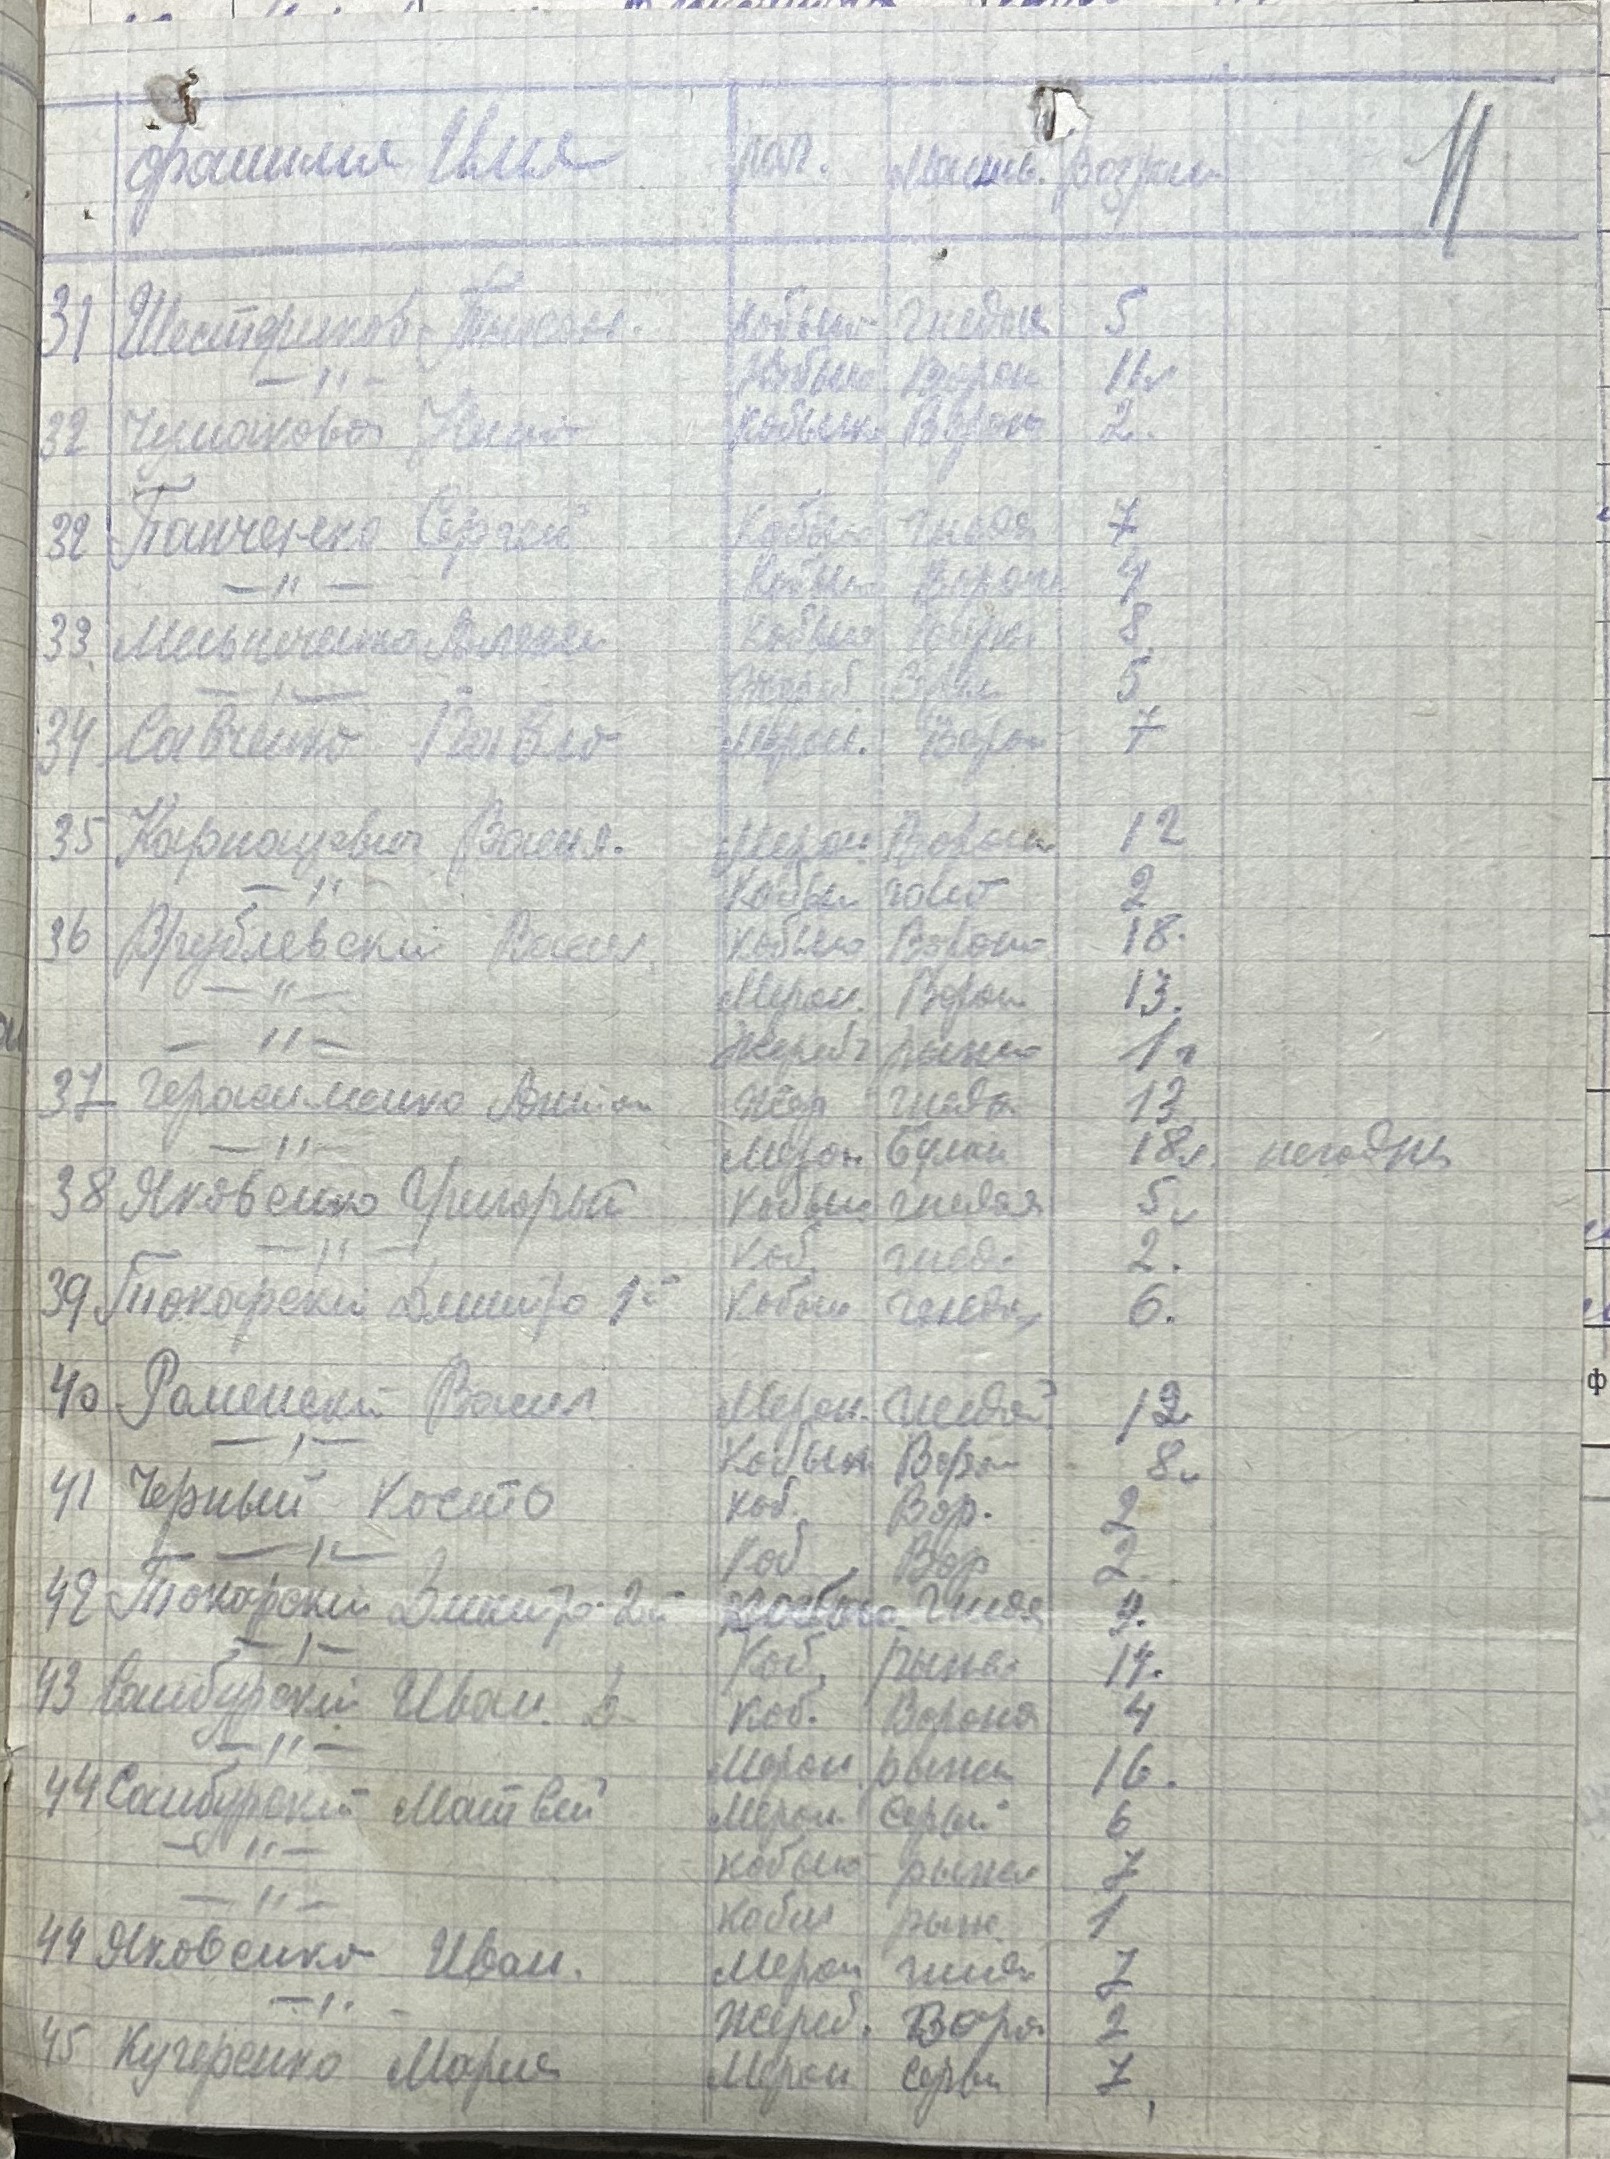 фамилия Имя пол. Масть. Возраст 11
31 Шестериков Тихон. кобыл гнедая 5
—"— Кобыл Ворон 11л
32 Чумакова кобыла Ворон 2.
32 Панченко Сергей Кобыл гнедая 7
—"— Кобыл Ворон 4
33. Мельниченко Алексей кобыл 8
—"— Жереб. 5
34 Савченко Павло Мерин. Ворон 7
35 Карпацевич Васил. Мерин Ворон 12
—"— Кобыл гнед 2
36 Врублевский Васил. кобыла Ворона 18.
—"— Мерин. Ворон 13.
—"— Жереб рыжа 1г
37 Герасименко Антон Жер гнеда 13
—"— Мерин Булан 18л. негодны
38 Яковенко Григорый Кобыл гнедая 5л
—"— Коб. гнед. 2.
39 Токарский Дмитро 1й Кобыл гнедая 6.
40 Раменский Васил Мерин. гнедой 12
—"— Кобыл Ворон 8л
41 Черный Косто коб. Вор. 2
—"— Коб Вор 2
42 Токарский Дмитро 2й Кобыла гнедя 9.
—"— Коб. рыжа. 14.
43 Самбурский Иван. Д коб. Вороная 4
—"— Мерин рыжи 16.
44 Самбурский Матвей Мерин серый 6
—"— кобыла рыжая 7
—"— кобыл рыж 1
44 Яковенко Иван. Мерин гнед 7
—"— Жереб. Ворон 2
45 Кучеренко Мария Мерин серы 7